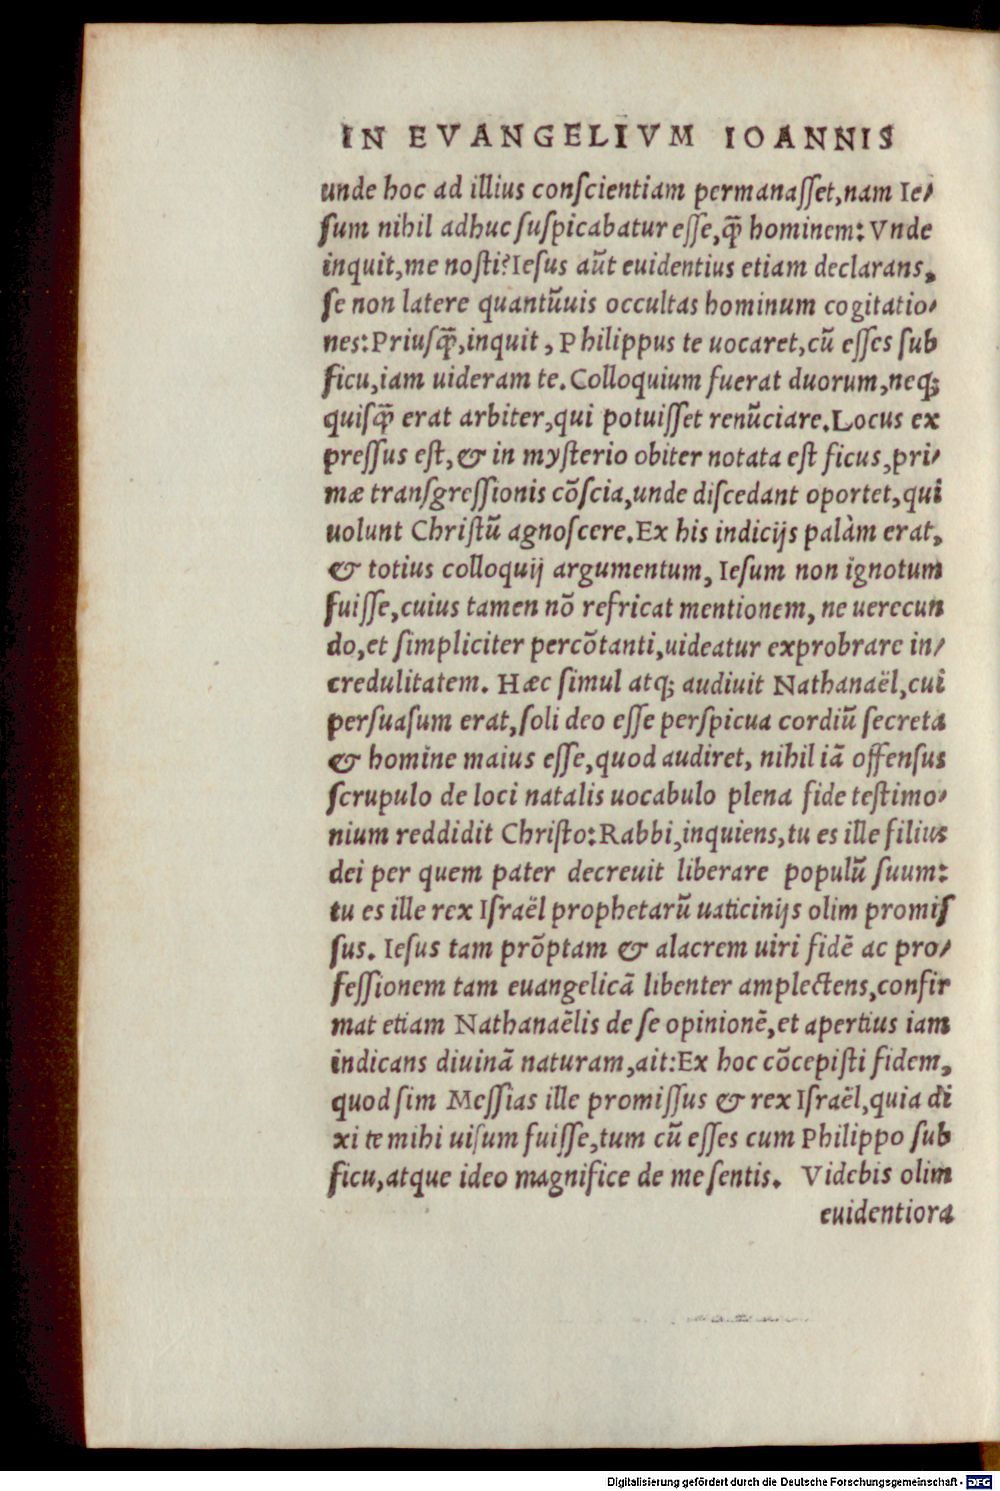 IN EVANGELIVM IOANNIS
unde hoc ad illius conſcientiam permanaſſet,nam Ie⸗
ſum nihil adhuc ſuſpicabatur eſſe,q̃ hominem: Vnde
inquit,me noſti? Ieſus aũt euidentius etiam declarans,
ſe non latere quantũuis occultas hominum cogitatio⸗
nes: Priuſq̃,inquit, Philippus te uocaret,cũ eſſes ſub
ficu,iam uideram te. Colloquium fuerat duorum,neq;
quiſq̃ erat arbiter,qui potuiſſet renũciare. Locus ex
preſſus eſt,& in myſterio obiter notata eſt ficus,pri⸗
mæ tranſgreſſionis cõſcia,unde diſcedant oportet,qui
uolunt Chriſtũ agnoſcere. Ex his indicijs palàm erat,
& totius colloquij argumentum, Ieſum non ignotum
fuiſſe,cuius tamen nõ refricat mentionem, ne uerecun
do,et ſimpliciter percõtanti,uideatur exprobrare in⸗
credulitatem. Hæc ſimul atq; audiuit Nathanaël,cui
perſuaſum erat,ſoli deo eſſe perſpicua cordiũ ſecreta
& homine maius eſſe,quod audiret, nihil iã offenſus
ſcrupulo de loci natalis uocabulo plena fide teſtimo⸗
nium reddidit Chriſto: Rabbi,inquiens,tu es ille filius
dei per quem pater decreuit liberare populũ ſuum:
tu es ille rex Iſraël prophetarũ uaticinijs olim promiſ
ſus. Ieſus tam prõptam & alacrem uiri fidẽ ac pro⸗
feſſionem tam euangelicã libenter amplectens,confir
mat etiam Nathanaëlis de ſe opinionẽ,et apertius iam
indicans diuinã naturam,ait: Ex hoc cõcepiſti fidem,
quod ſim Meſſias ille promiſſus & rex Iſraël,quia di
xi te mihi uiſum fuiſſe,tum cũ eſſes cum Philippo ſub
ficu,atque ideo magnifice de me ſentis. Videbis olim
euidentiora
Digitalisierung gefördert durch die Deutsche Forschungsgemeinschaft - DFG